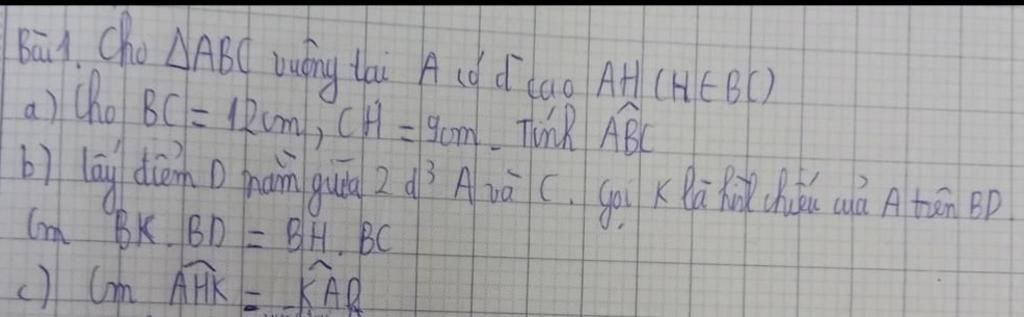 Bài 1. Cho ΔABC vuông tại A có đ cao AH (H∈BC)
a) Cho BC = 12cm, CH = 9cm. Tính \widehat{ABC}
b) lấy điểm D nằm giữa 2 đ³ A và C. gọi K là hình chiếu của A trên BD.
Cm BK.BD = BH.BC
c) Cm \widehat{AHK} = \widehat{KAB}